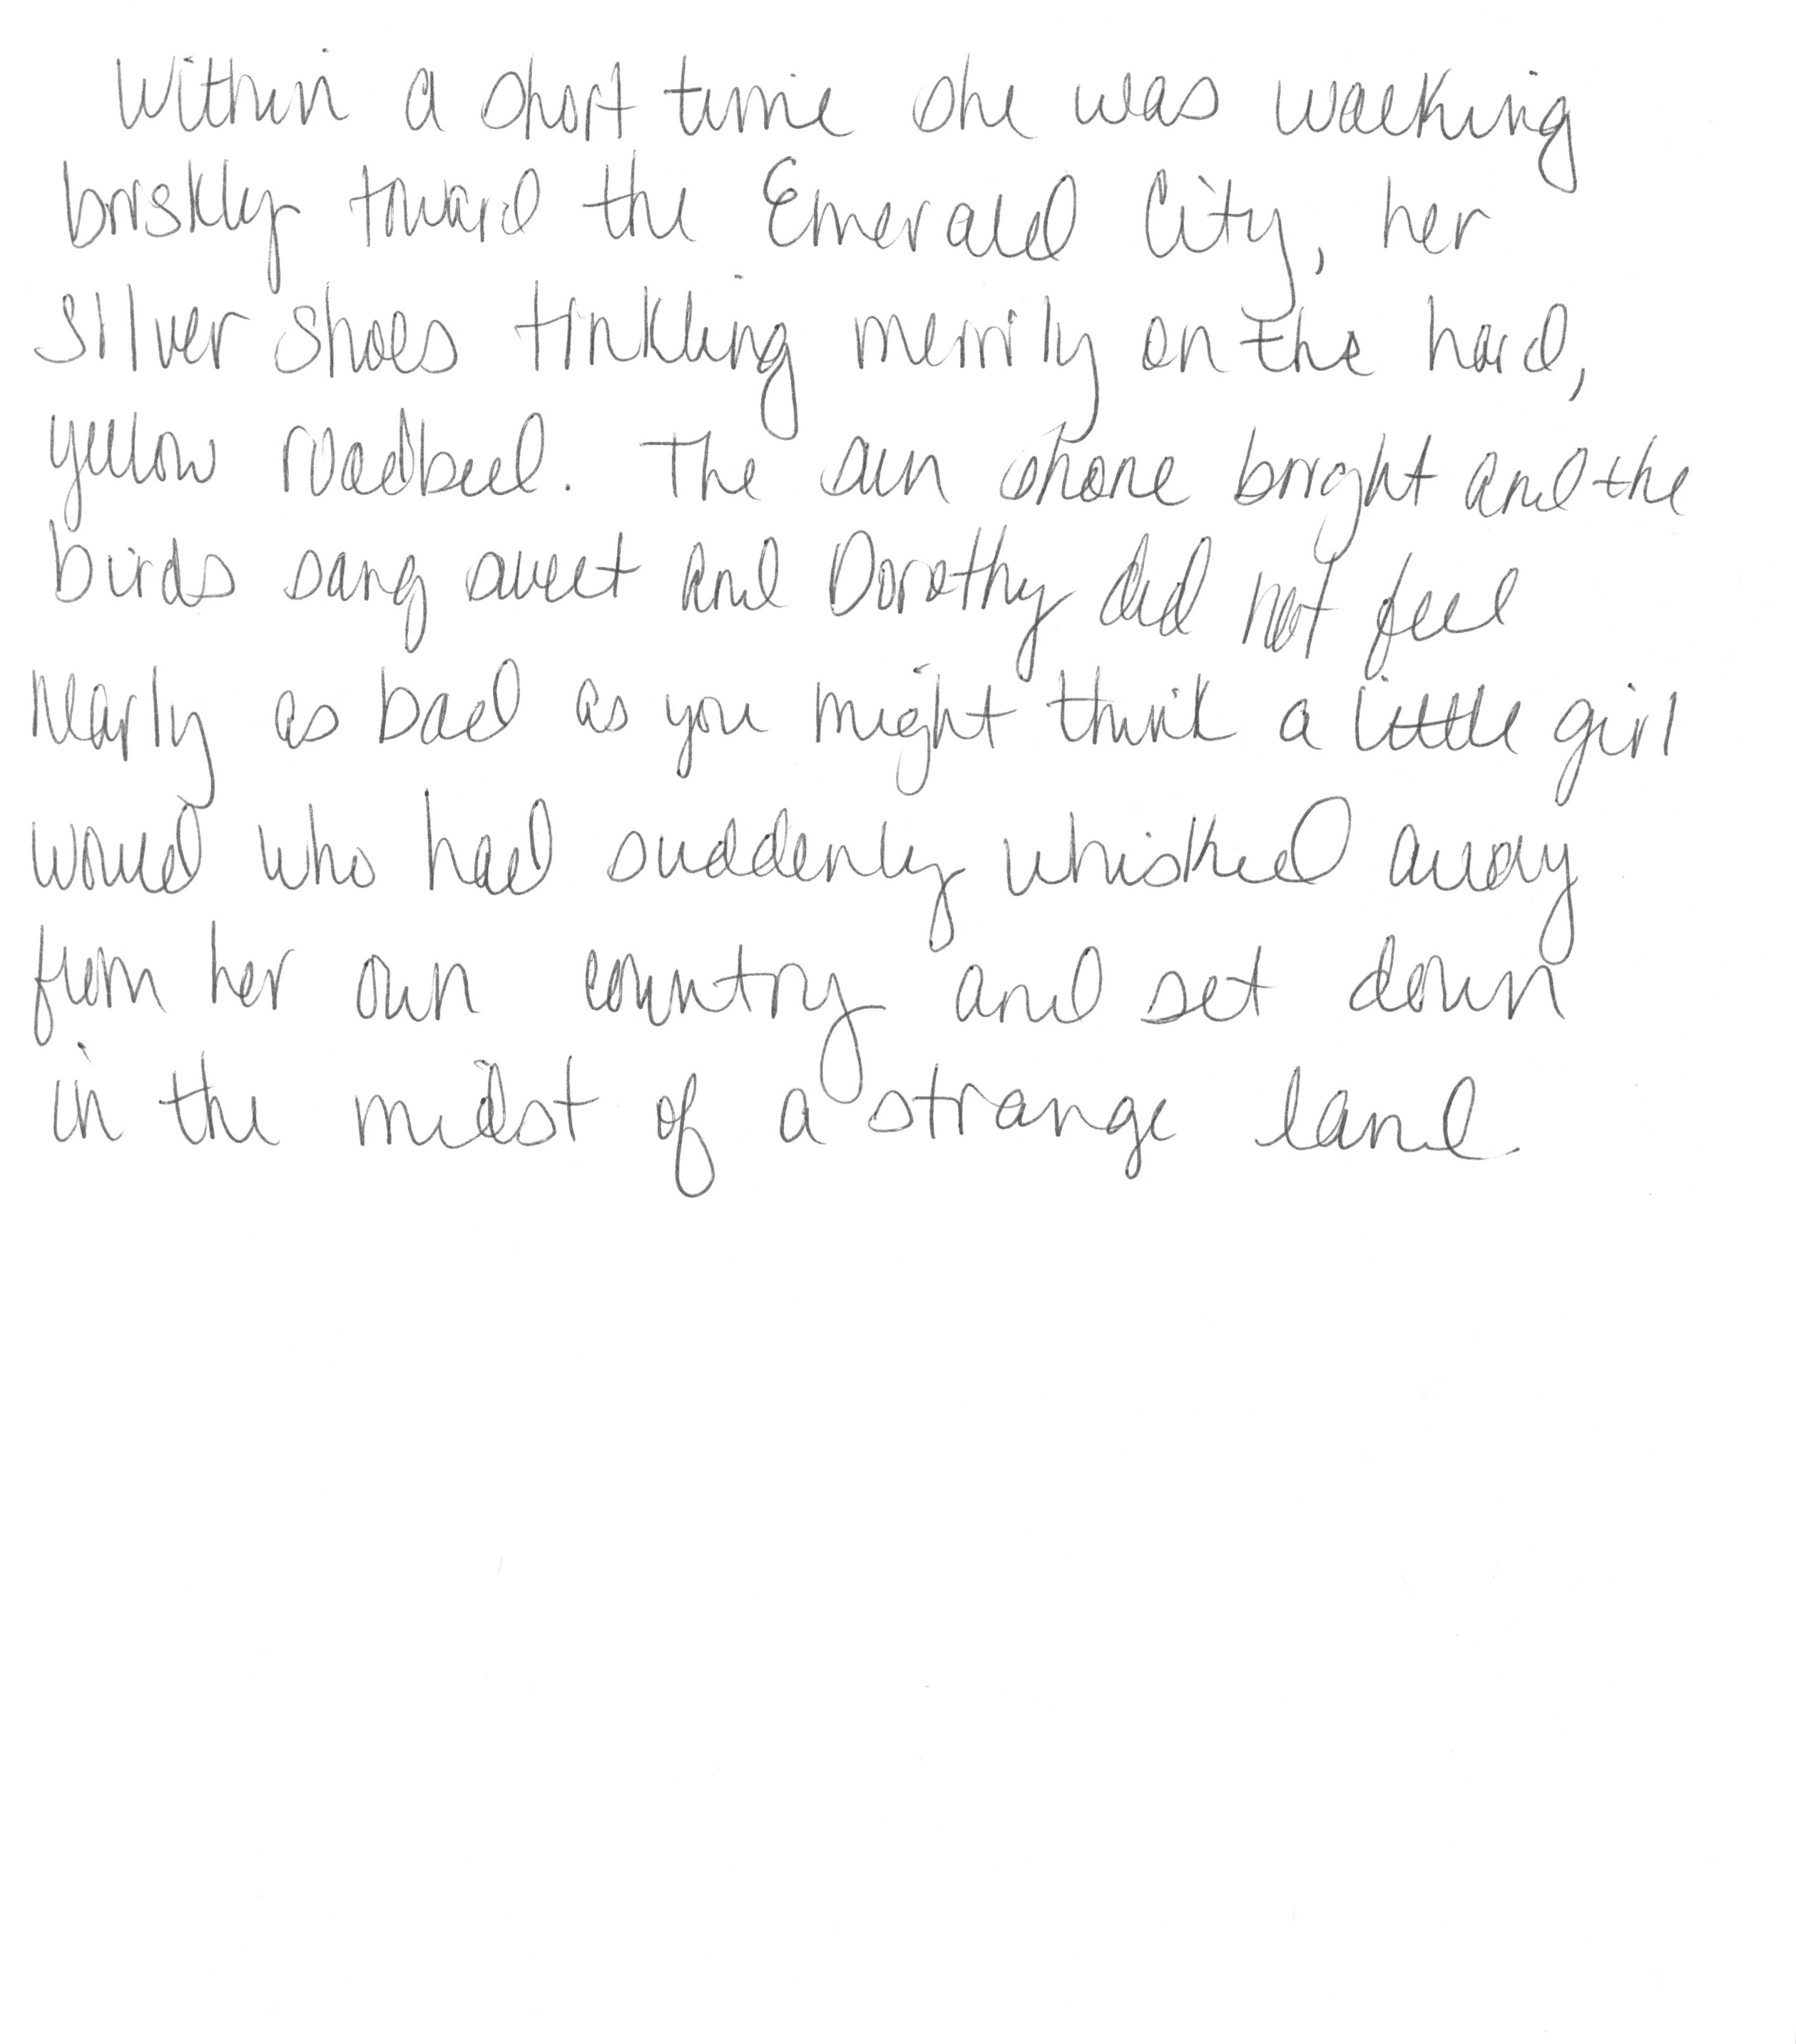 Within a short time she was walking
briskly toward the Emerald City, her
silver shoes tinkling merrily on the hard,
yellow roadbed. The sun shone bright and the
birds sang sweet and Dorothy did not feel
nearly as bad as you might think a little girl
would who had suddenly whisked away
from her own country and set down
in the midst of a strange land